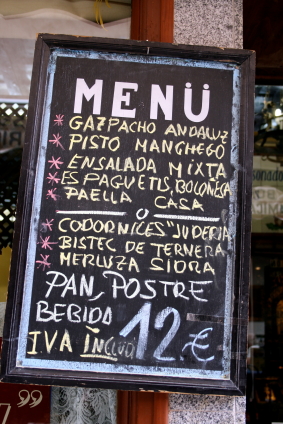 MENÜ
* GAZPACHO ANDALUZ
* PISTO MANCHEGO
* ENSALADA MIXTA
* ESPAGUETIS, BOLONESA
* PAELLA CASA
O
* CODORNICES "JUDERIA
* BISTEC DE TERNERA
* MERLUZA SIDRA
PAN, POSTRE
BEBIDA
IVA INCLUIDO 12€